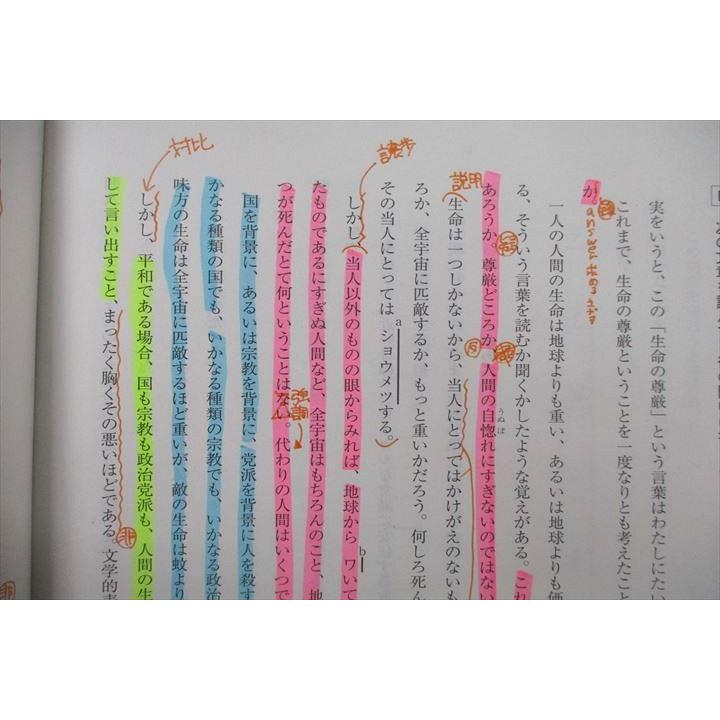 実をいうと、この「生命の尊厳」という言葉はわたしにたい
これまで、生命の尊厳ということを一度なりとも考えたこと
か。
一人の人間の生命は地球よりも重い、あるいは地球よりも価
る、そういう言葉を読むか聞くかしたような覚えがある。これ
あろうか。尊厳どころか、人間の自惚れにすぎないのではない
うぬぼ
説明
生命は一つしかないから、当人にとってはかけがえのないも
ろか、全宇宙に匹敵するか、もっと重いかだろう。何しろ死ん
その当人にとってはショウメツする。）
a
譲歩
しかし、当人以外のものの眼からみれば、地球からワいて
b
たものであるにすぎぬ人間など、全宇宙はもちろんのこと、地
つが死んだとて何ということはない。代わりの人間はいくつで
強調
国を背景に、あるいは宗教を背景に、党派を背景に人を殺す
かなる種類の国でも、いかなる種類の宗教でも、いかなる政治
味方の生命は全宇宙に匹敵するほど重いが、敵の生命は蚊より
対比
しかし、平和である場合、国も宗教も政治党派も、人間の生
して言い出すこと、まったく胸くその悪いほどである。文学的
非